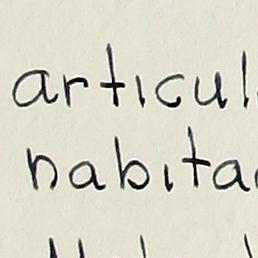 articul
habita